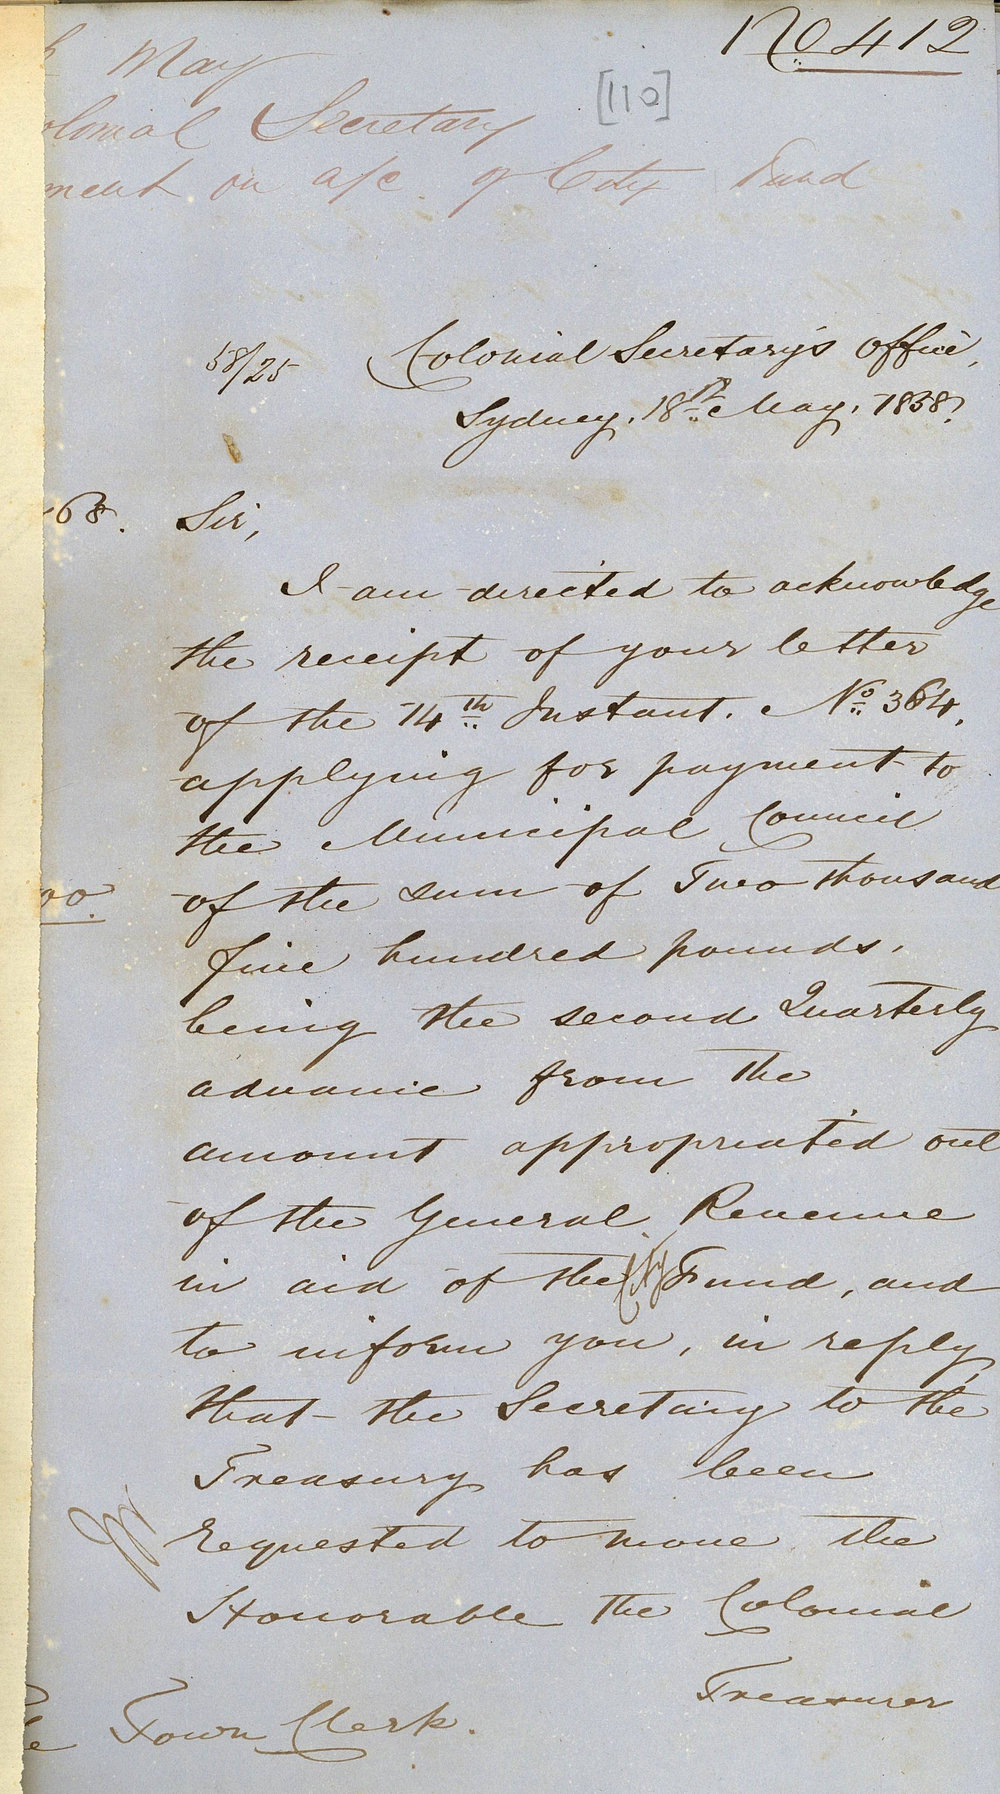 No 412
May
[110]
olonial Secretary
ment on a/c of City Fund
58/25
Colonial Secretary's Office,
Sydney. 18th May. 1858.
68.
Sir,
I am directed to acknowledge
the receipt of your letter
of the 14th Instant. No 364,
applying for payment to
the Municipal Council
00.
of the sum of Two thousand
five hundred pounds,
being the second Quarterly
advance from the
amount appropriated out
of the General Revenue
in aid of the City Fund, and
to inform you, in reply,
that the Secretary to the
Treasury has been
requested to move the
Honorable the Colonial
Treasurer
e Town Clerk.